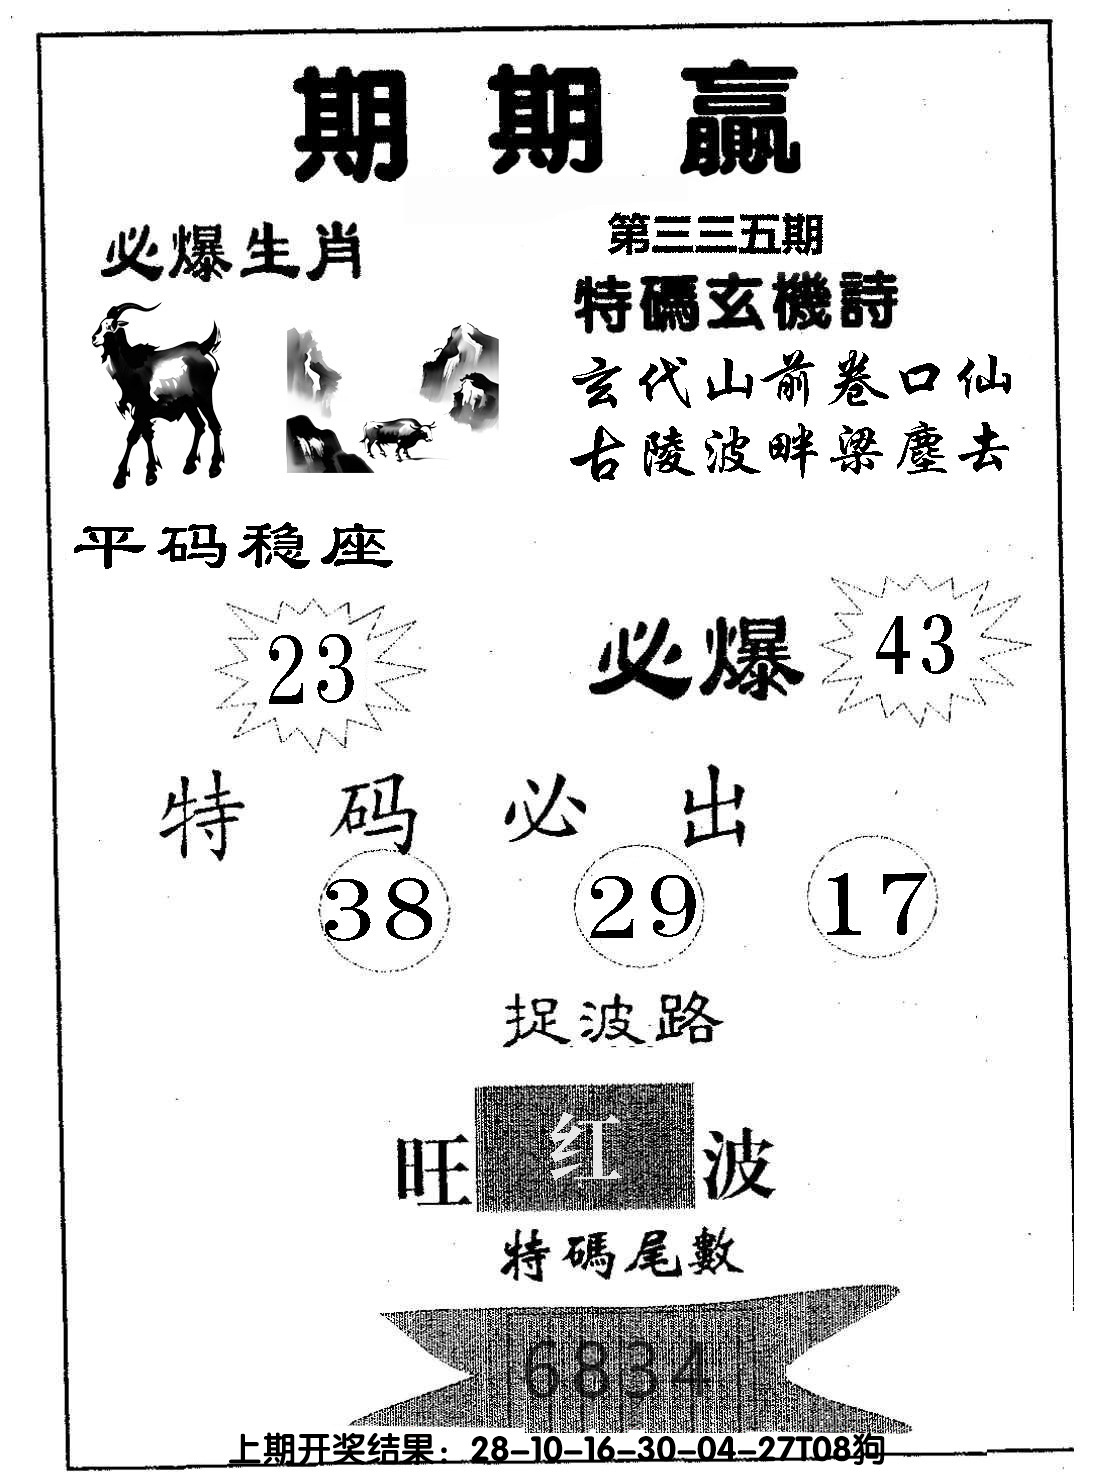 期期赢
必爆生肖
第三三五期
特碼玄機詩
玄代山前卷口仙
古陵波畔梁塵去
平码稳座
23
必爆 43
特码必出
38 29 17
捉波路
旺 红 波
特碼尾數
6834
上期开奖结果：28-10-16-30-04-27T08狗